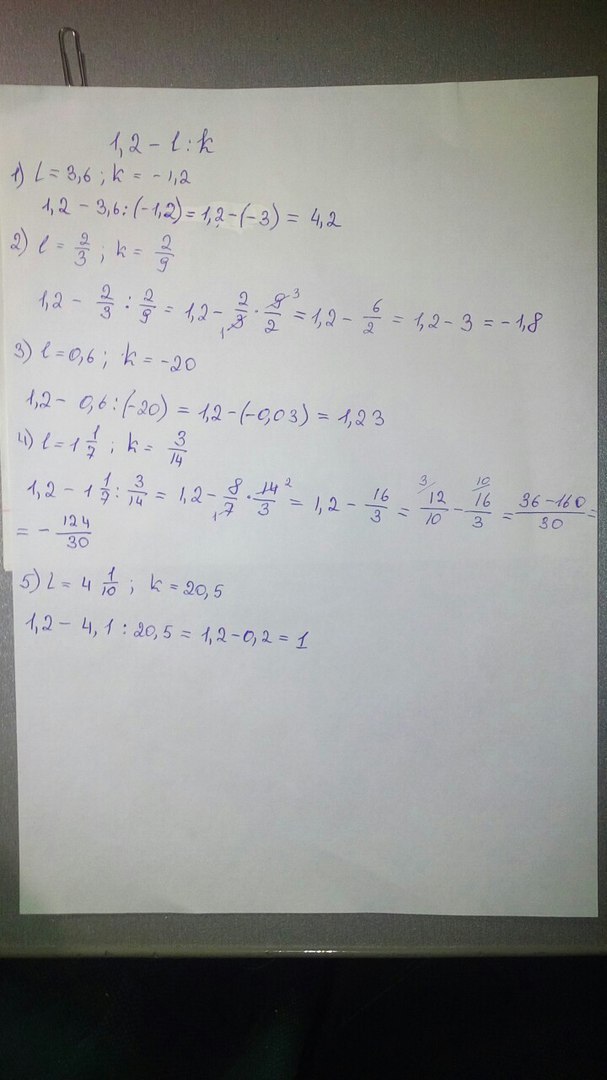 1,2 - l : k
1) L = 3,6 ; k = -1,2
1,2 - 3,6 : (-1,2) = 1,2 - (-3) = 4,2
2) l = 2/3 ; k = 2/9
1,2 - 2/3 : 2/9 = 1,2 - 2/3 1 · 9/2 3 = 1,2 - 6/2 = 1,2 - 3 = -1,8
3) l = 0,6 ; k = -20
1,2 - 0,6 : (-20) = 1,2 - (-0,03) = 1,23
4) l = 1 1/7 ; k = 3/14
1,2 - 1 1/7 : 3/14 = 1,2 - 8/7 1 · 14/3 2 = 1,2 - 16/3 = 3/ 12/10 - 10/ 16/3 = (36 - 160)/30 =
= - 124/30
5) L = 4 1/10 ; k = 20,5
1,2 - 4,1 : 20,5 = 1,2 - 0,2 = 1